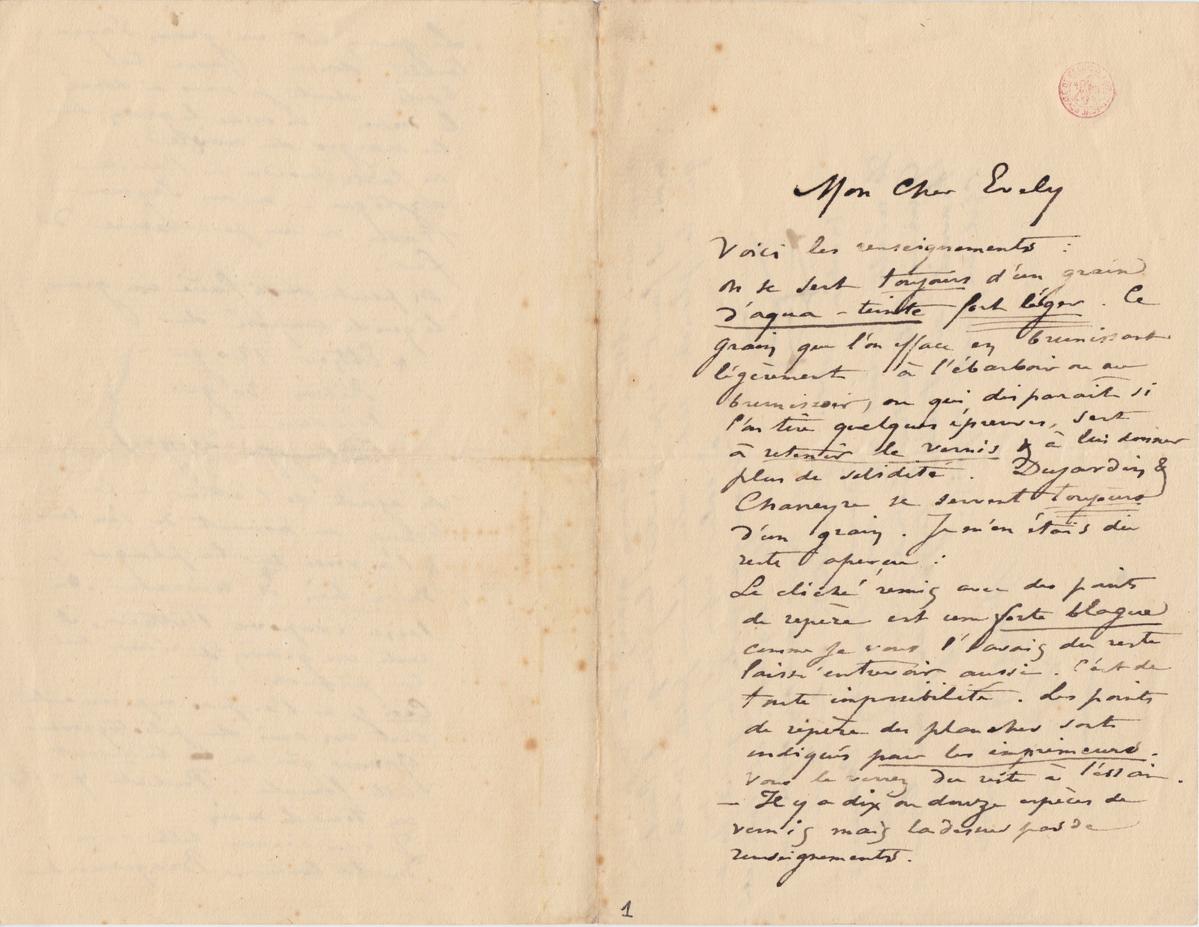 Mon Cher Evely
Voici les renseignements :
on se sert toujours d'un grain
d'aqua-teinte fort léger. Ce
grain que l'on efface en brunissant
légèrement à l'ébarboir ou au
brunissoir, ou qui disparait si
l'on tire quelques épreuves, sert
à retenir le vernis & à lui donner
plus de solidité. Dujardin &
Charreyre se servent toujours
d'un grain. Je m'en étais du
reste aperçu :
Le cliché remis avec des points
de repère est une forte blague
comme je vous l'avais du reste
laissé entrevoir aussi. C'est de
toute impossibilité. Les points
de repère des planches sont
indiqués pour les imprimeurs.
Vous le verrez du reste à l'éssai.
— Il y a dix ou douze espèces de
vernis mais la dessus pas de
renseignements.
1